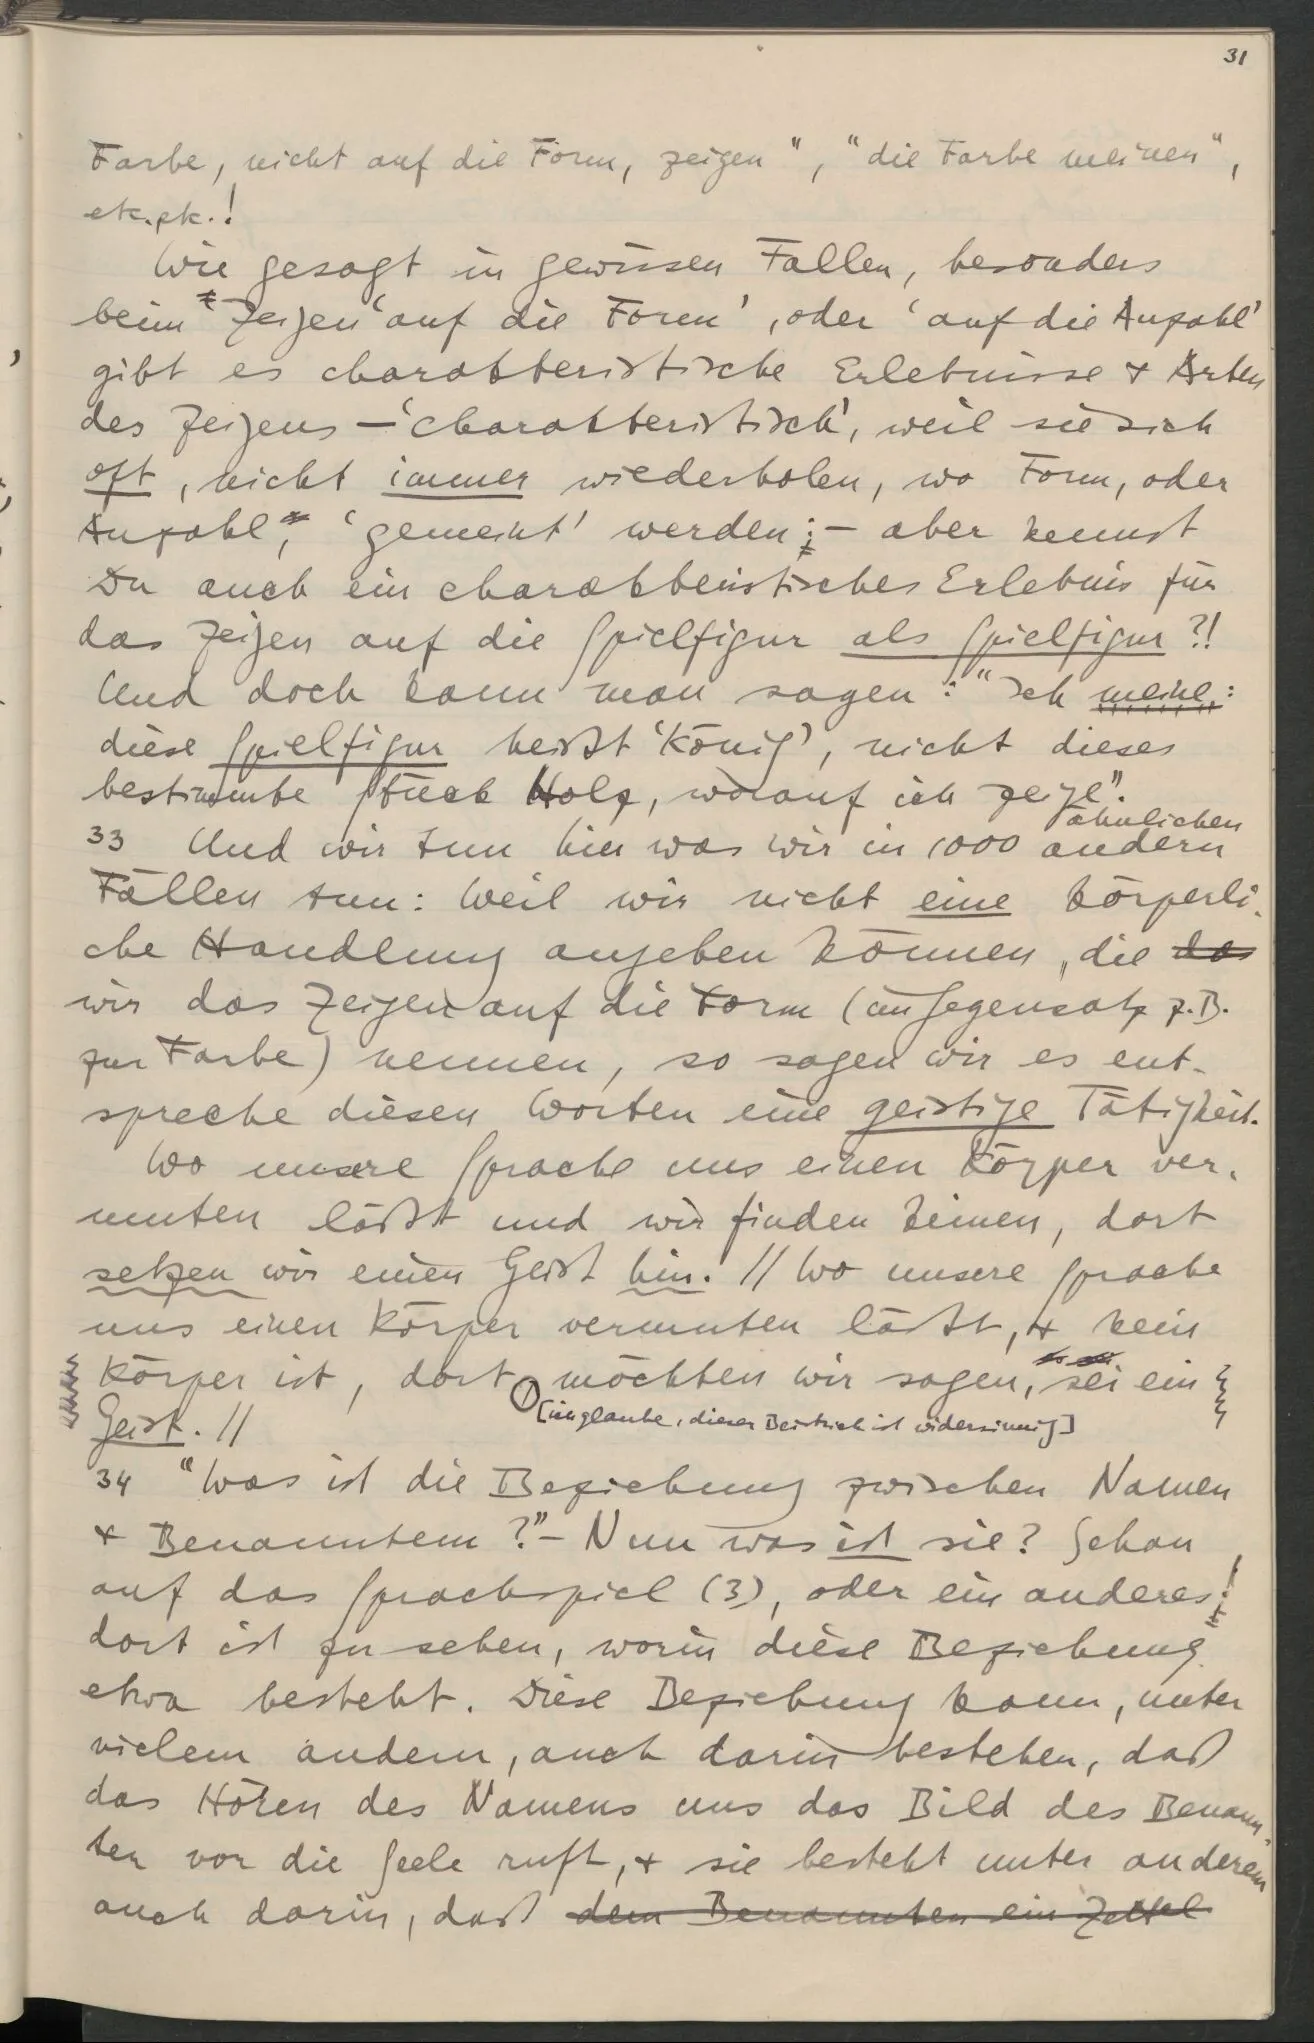 31
Farbe, nicht auf die Form, zeigen", "die Farbe meinen",
etc. etc.!
Wie gesagt in gewissen Fällen, besonders
beim 'Zeigen 'auf die Form', oder 'auf die Anzahl'
gibt es charakteristische Erlebnisse & Arten
des Zeigens – 'charakteristisch', weil sie sich
oft, nicht immer wiederholen, wo Form, oder
Anzahl, 'gemeint' werden; – aber kennst
Du auch ein charakteristisches Erlebnis für
das Zeigen auf die Spielfigur als Spielfigur?!
Und doch kann man sagen: "Ich meine:
diese Spielfigur heißt 'König', nicht dieses
bestimmte Stück Holz, worauf ich zeige".
ähnlichen
33 Und wir tun hier was wir in 1000 andern
Fällen tun: Weil wir nicht eine körperli-
che Handlung angeben können, die das
wir das Zeigen auf die Form (im Gegensatz z.B.
zur Farbe) nennen, so sagen wir es ent-
spreche diesen Worten eine geistige Tätigkeit.
Wo unsere Sprache uns einen Körper ver-
muten läßt und wir finden keinen, dort
setzen wir einen Geist hin. // Wo unsere Sprache
uns einen Körper vermuten läßt, & kein
Körper ist, dort, möchten wir sagen, sei ein
[ich glaube, dieser Beistrich ist widersinnig]
Geist. //
34 "Was ist die Beziehung zwischen Namen
& Benanntem?" – Nun was ist sie? Schau
auf das Sprachspiel (3), oder ein anderes!
dort ist zu sehen, worin diese Beziehung
etwa besteht. Diese Beziehung kann, unter
vielem andern, auch darin bestehen, daß
das Hören des Namens uns das Bild des Benann-
ten vor die Seele ruft, & sie besteht unter anderem
auch darin, daß dem Benannten ein Zettel